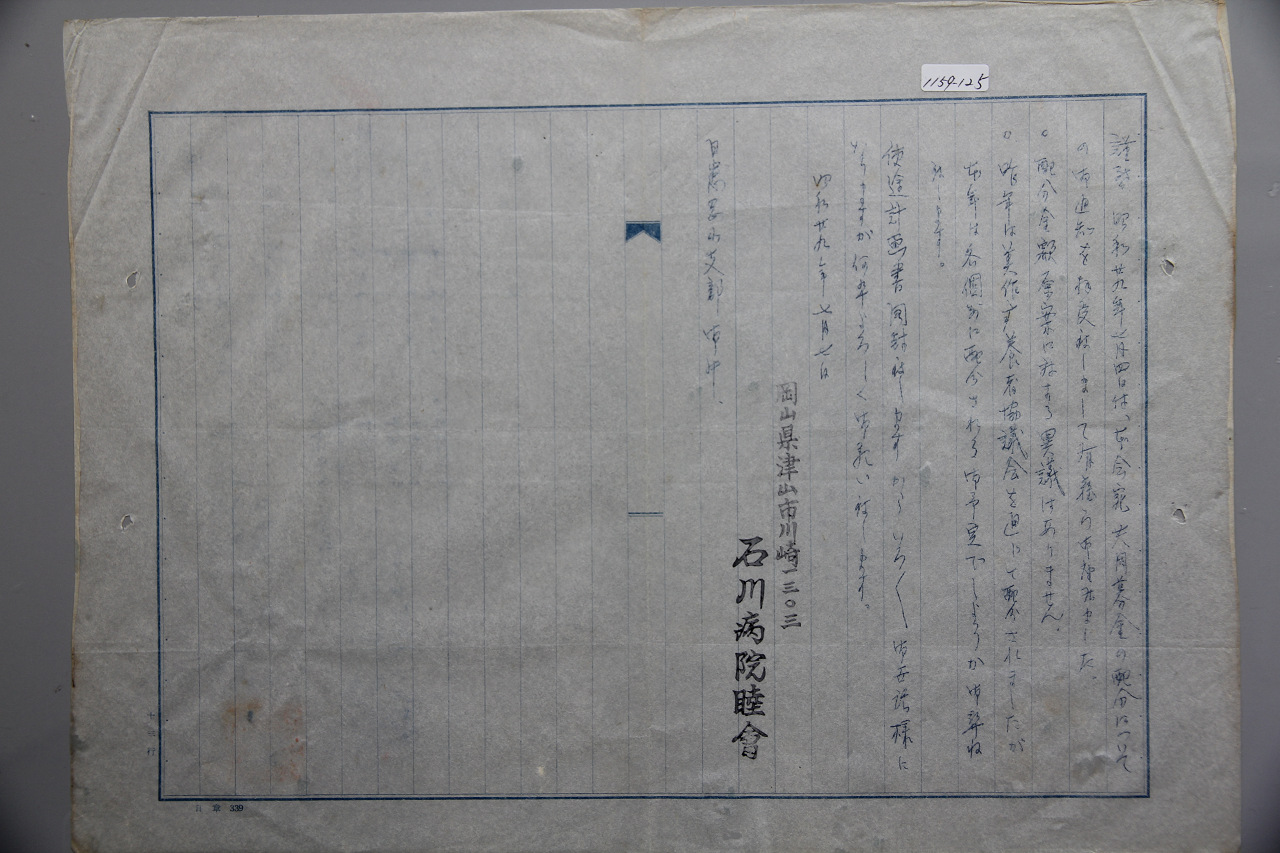 1159-125
謹啓 昭和廿九年七月四日付、本会宛 共同募金の配分について
の御通知を拝受致しまして 御座いました。
○ 配分金額原案に対する異議はありません。
○ 昨年は美作療養者協議会を通じて配分されましたが
本年は各個別に配分される御予定でしょうか 御尋ね
致します。
使途計画書同封致しますから いろ〱 御世話様に
なりますが 何卒よろしく御願い致します。
昭和廿九年 七月七日
岡山県津山市川崎一三〇三
石川病院睦會
日患岡山支部 御中
十三行
339